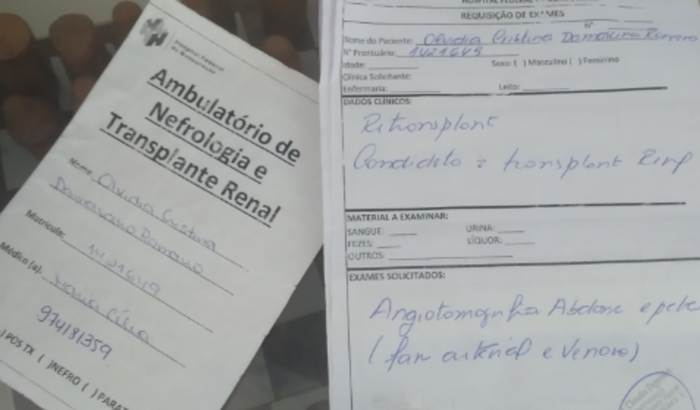 Hospital Federal
de Bonsucesso
Ambulatório de
Nefrologia e
Transplante Renal
Nome Cristina
Matrícula: 1421649
Médico(a):
974181359
) PÓS TX ( )NEFRO ( ) PARAT
HOSPITAL FEDERAL
REQUISIÇÃO DE EXAMES
Nº
Nome do Paciente: Cristina
Nº Prontuário: 1421649
Idade: Sexo: ( ) Masculino ( ) Feminino
Clínica Solicitante:
Enfermaria: Leito:
DADOS CLÍNICOS:
Retransplant
Candidato a transplant Renp
MATERIAL A EXAMINAR:
SANGUE: URINA:
FEZES: LÍQUOR:
OUTROS:
EXAMES SOLICITADOS:
Angiotomografia Abdome e pelv
(fan arterial e venoso)